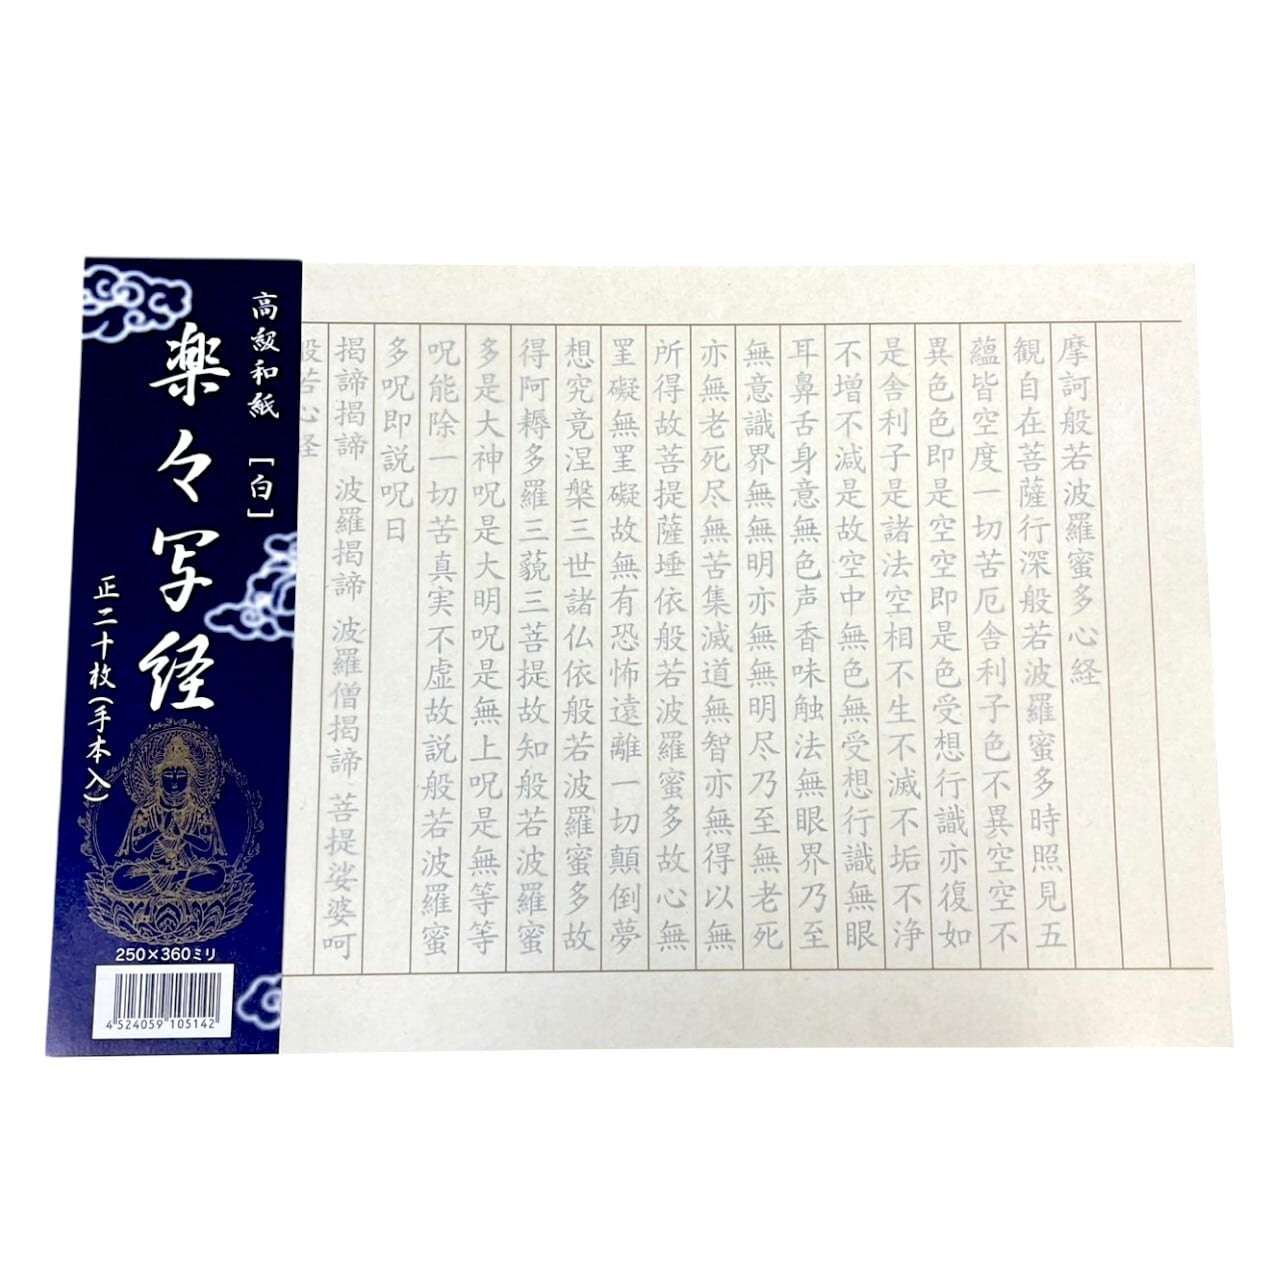 高級和紙［白］
楽々写経
正二十枚(手本入)
250×360ミリ
4 524059 105142
摩訶般若波羅蜜多心経
観自在菩薩行深般若波羅蜜多時照見五
蘊皆空度一切苦厄舎利子色不異空空不
異色色即是空空即是色受想行識亦復如
是舎利子是諸法空相不生不滅不垢不浄
不増不減是故空中無色無受想行識無眼
耳鼻舌身意無色声香味触法無眼界乃至
無意識界無無明亦無無明尽乃至無老死
亦無老死尽無苦集滅道無智亦無得以無
所得故菩提薩埵依般若波羅蜜多故心無
罣礙無罣礙故無有恐怖遠離一切顛倒夢
想究竟涅槃三世諸仏依般若波羅蜜多故
得阿耨多羅三藐三菩提故知般若波羅蜜
多是大神呪是大明呪是無上呪是無等等
呪能除一切苦真実不虚故説般若波羅蜜
多呪即説呪曰
揭諦揭諦 波羅揭諦 波羅僧揭諦 菩提娑婆呵
般若心経